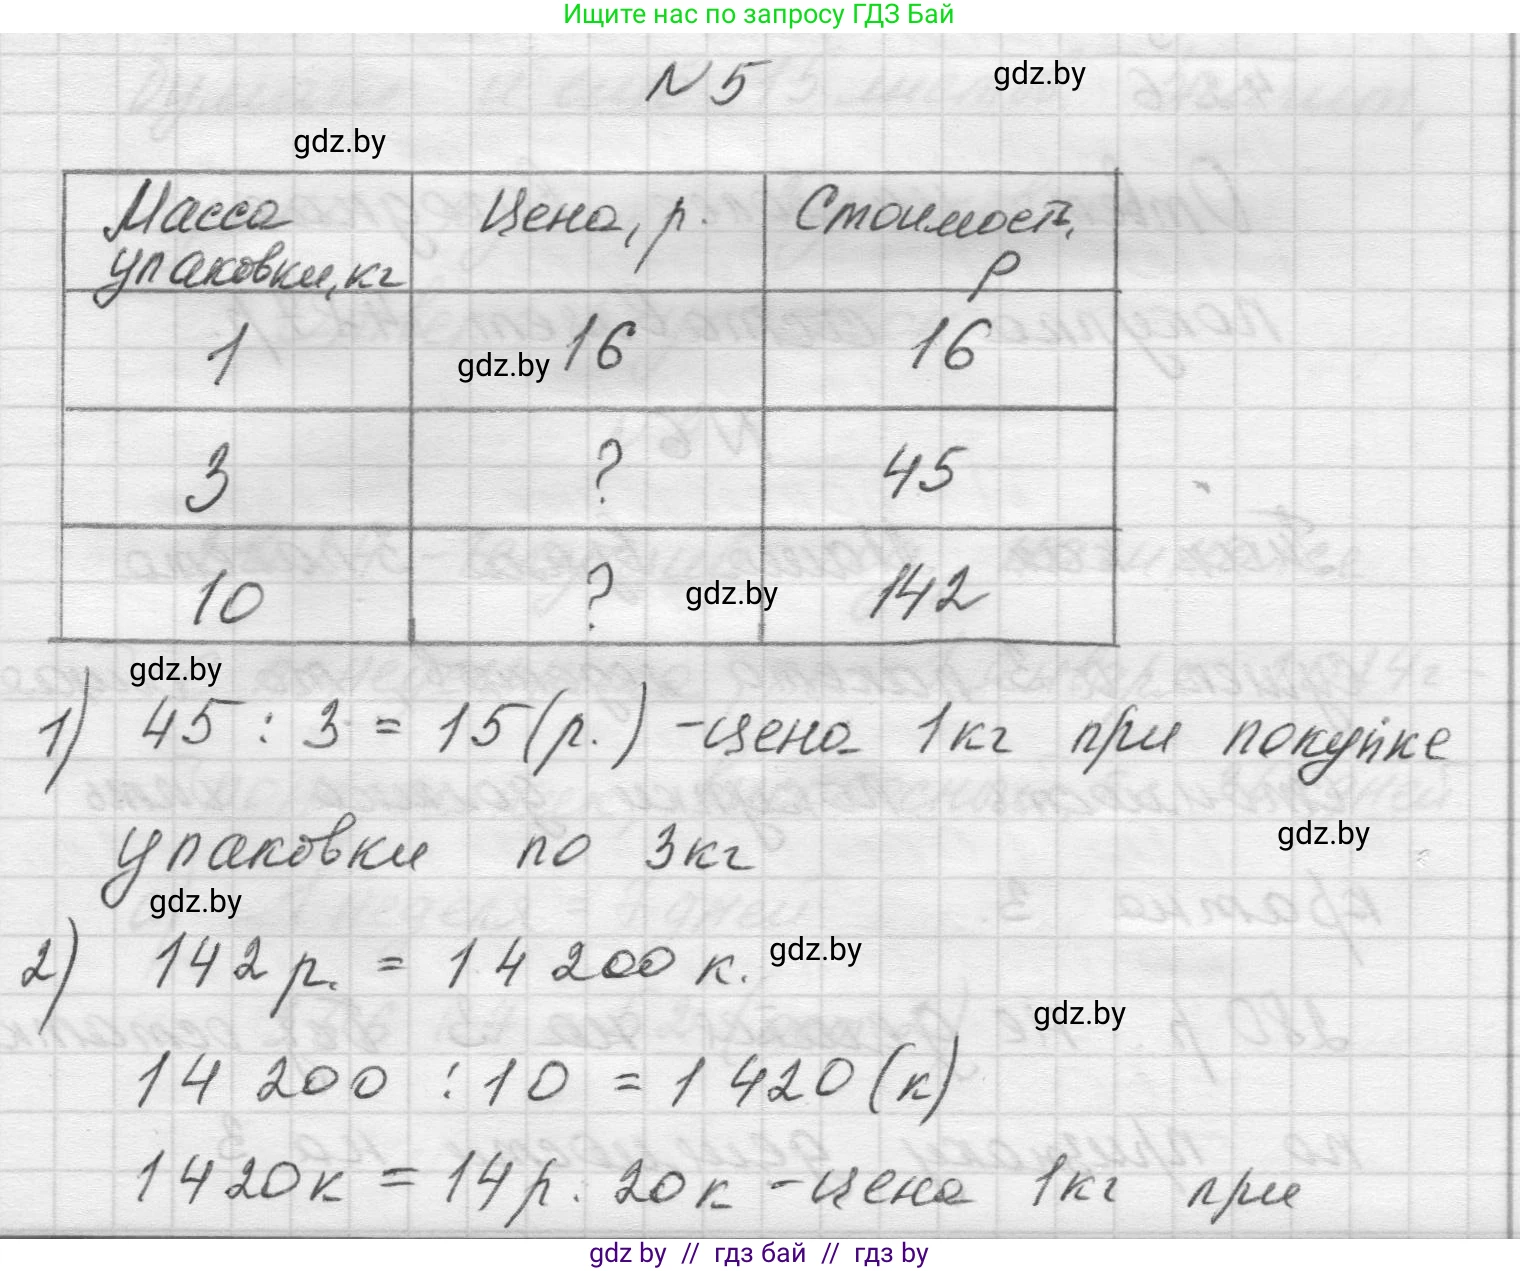 Ищите нас по запросу ГДЗ Бай
N 5
gdz.by
gdz.by
Масса упаковки, кг
Цена, р.
Стоимость, р
1
gdz.by
16
16
3
?
45
10
?
gdz.by
142
gdz.by
1) 45 : 3 = 15 (р.) - цена 1кг при покупке
упаковки по 3кг
gdz.by
gdz.by
2) 142 р. = 14 200 к.
gdz.by
gdz.by
14 200 : 10 = 1 420 (к)
1420к = 14р. 20к - цена 1кг при
gdz by // гдз бай // гдз by